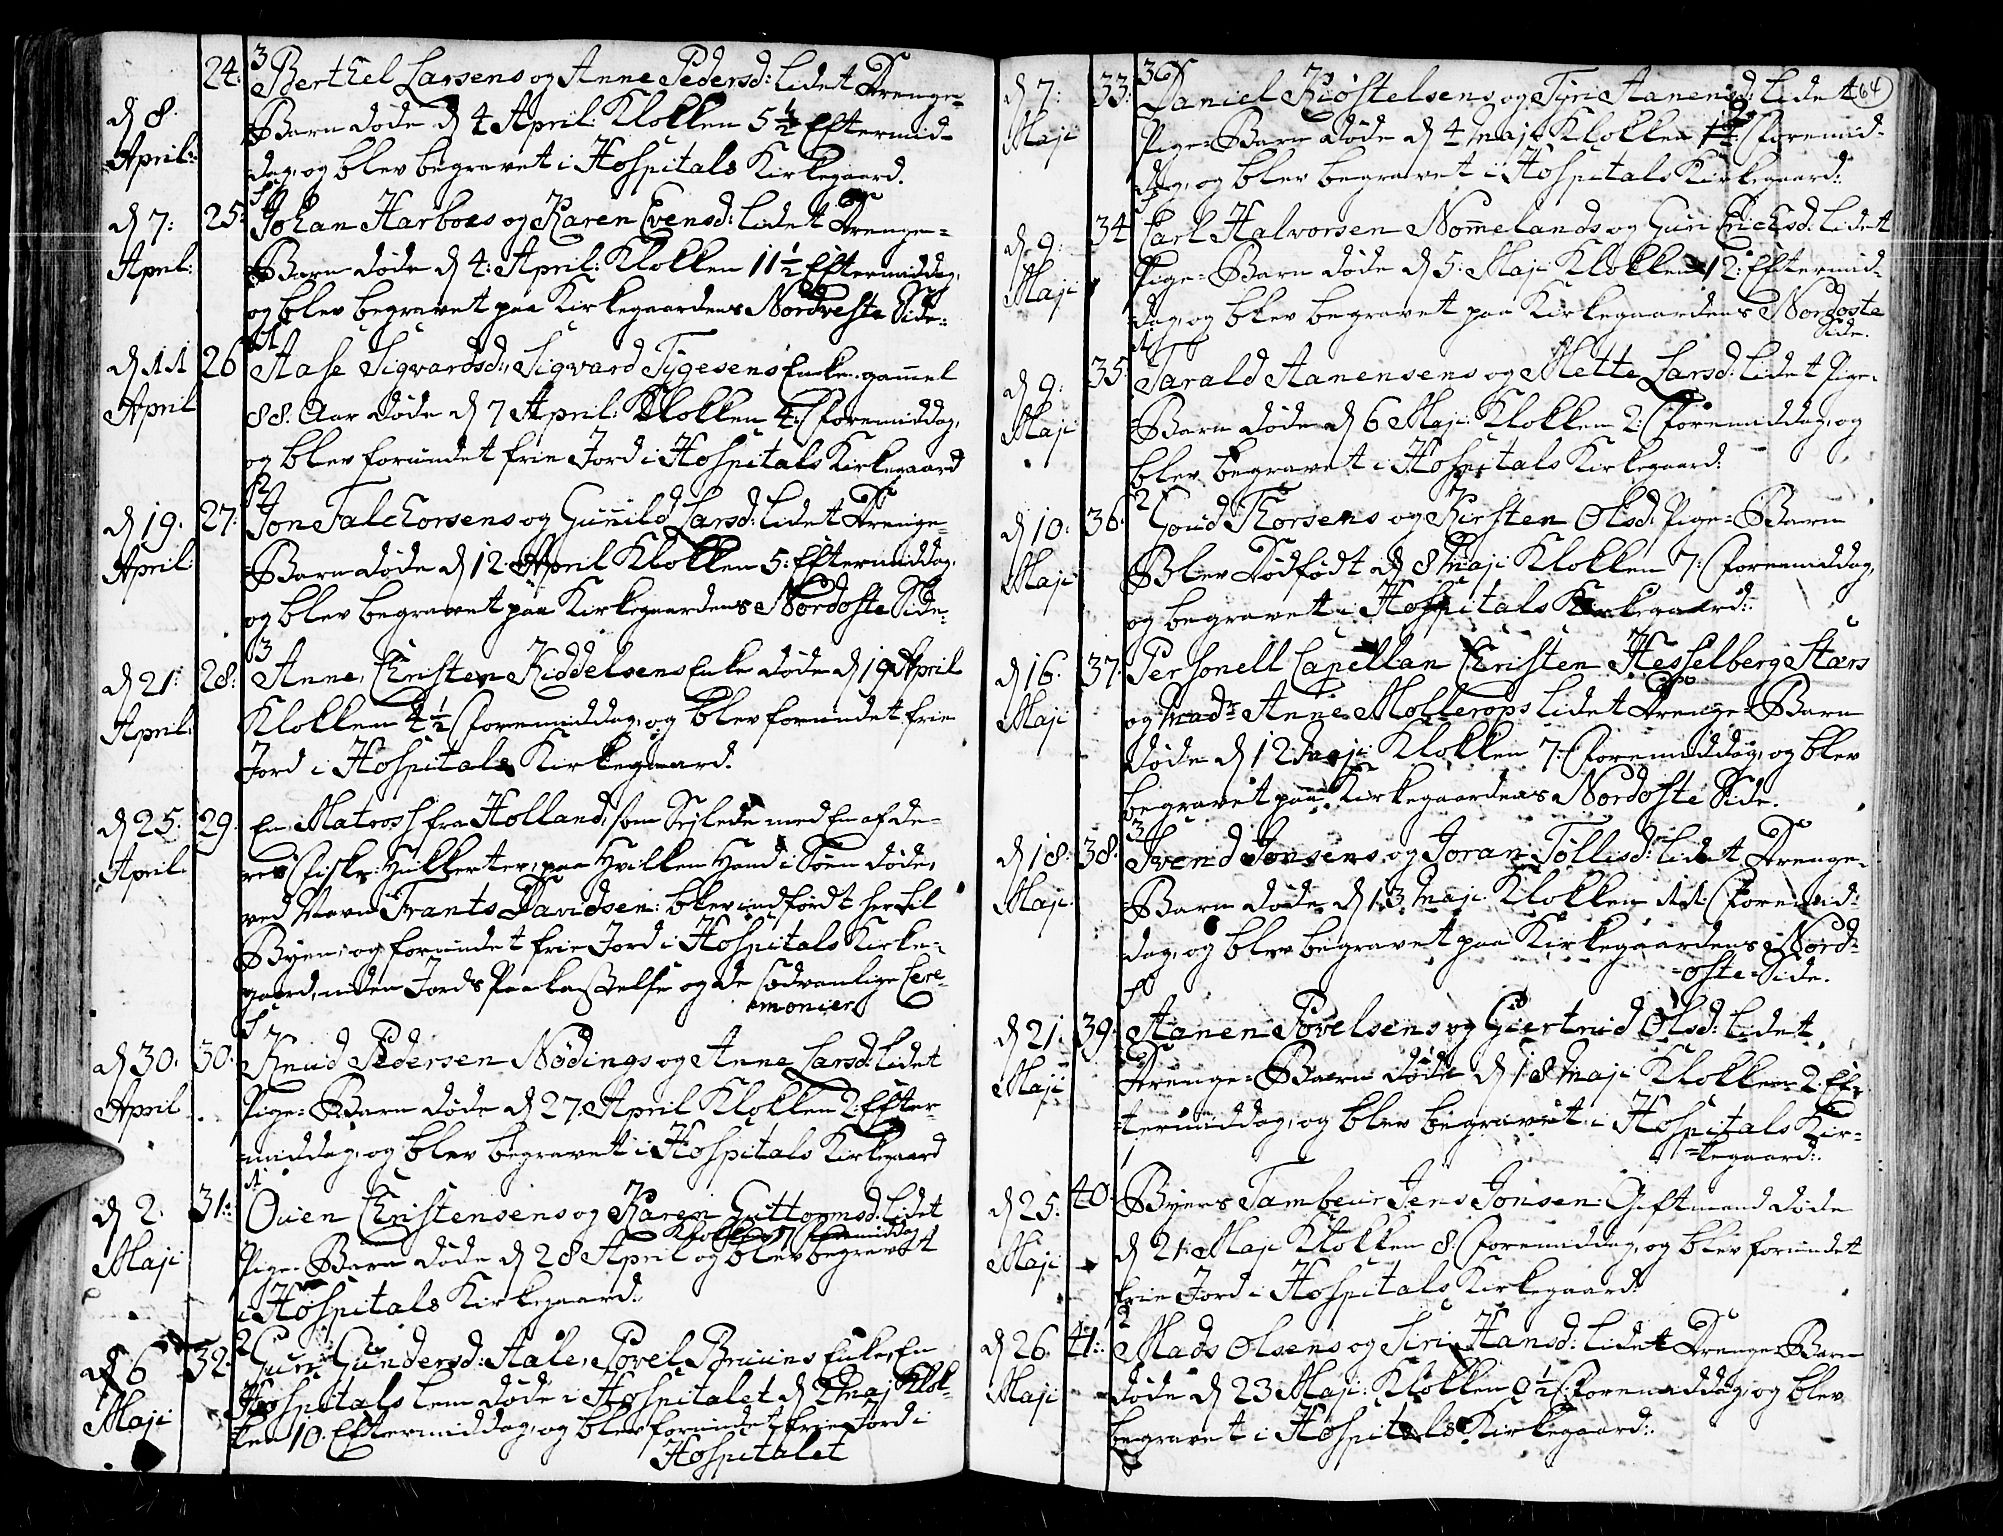 d 8. April: 24: 3 Berthel Larsens og Anne Pedersd: lidet Drenge-
Barn døde d 4 April: Klokken 5 1/2 Eftermid-
dag, og blev begravet i Hospitals Kirkegaard.
d 7: April: 25: Johan Harboes og Karen Evensd: lidet Drenge-
Barn døde d 4: April: Klokken 11 1/2 Eftermiddag,
og blev begravet paa Kirkegaardens Nordveste Side:
d 11 April 26 Aase Sigvardsd:, Sigvard Tygesens Enke. gamel
88: Aar døde d 7 April: Klokken 4: Formiddag,
og blev forundet frie Jord i Hospitals Kirkegaard
d 19. April: 27: Jon Falchorsens og Gunild Larsd: lidet Drenge-
Barn døde d 12 April Klokken 5: Eftermiddag,
og blev begravet paa Kirkegaardens Nordoste Side:
d 21: April: 28: 3 Anne, Christen Kiddelsens Enke døde d 19 April
Klokken 4 1/2 Formiddag, og blev forundet frie
Jord i Hospitals Kirkegaard.
d 25: April. 29. En Matross fra Holland, som Sejlede med En af de-
res Fisker-Hukkerter, paa hvilken Hand i Søen døde,
ved Navn Frants Davidsen: blev indført her til
Byen, og forundet frie Jord i Hospitals Kirke-
gaard, uden Jords Paakastelse og de sædvanlige Cere-
monier
d 30. April 30. Knud Pedersen Nødings og Anne Larsd: lidet
Pige-Barn døde d 27. April Klokken 2: Efter-
middag, og blev begravet i Hospitals Kirkegaard
d 2. Maji 31: Ouen Christensens og Karen Guttormsd: lidet
Klokken 7 Formiddag
Pige-Barn døde d 28 April og blev begravet
i Hospitals Kirkegaard:
d 6 Maji 32. 2 Guri Gundersd: Aale, Povel Bruuns Enke, En
Hospitals lem døde i Hospitalet d 2 Maj Klok-
ken 10. Eftermiddag, og blev forundet frie Jord i
Hospitalet
64
d 7: Maji 33: 36 Daniel Kiøstelsens og Tyri Aanensd: lidet
Pige-Barn døde d 4 Maji Klokken Formid-
dag, og blev begravet i Hospitals Kirkegaard:
d 9: Maji 34 Carl Halvorsen Nomelands og Guri Erichsd: lidet
Pige-Barn døde d 5: Maji Klokken 12: Eftermid-
dag, og blev begravet paa Kirkegaardens Nordoste
Side.
d 9: Maji 35: Tarald Aanensens og Mette Larsd: lidet Pige-
Barn døde d 6 Maji Klokken 2: Formiddag, og
blev begravet i Hospitals Kirkegaard:
d 10: Maji 36: 2 Thorsens og Kirsten Olsd: Pige-Barn
Blev Dødfødt d 8 Maji Klokken 7: Formiddag,
og begravet i Hospitals Kirkegaard:
d 16. Maji 37. Personell Capellan Christen Hesselberg Stærs
og Madr Anne Mollerops lidet Drenge-Barn
døde d 12 Maji Klokken 7: Formiddag, og blev
begravet paa Kirkegaardens Nordoste Side.
d 18: Maji 38: 3 Svend Jonsens og Joran Tøllisd: lidet Drenge-
Barn døde d 13 Maji Klokken 11: Formid-
dag, og blev begravet paa Kirkegaardens Nord-
-oste-Side.
d 21: Maji 39: Aanen Povelsens og Giertrud Olsd: lidet
Drenge-Barn døde d 18 Maji Klokken 2: Ef-
termiddag, og blev begravet i Hospitals Kir-
-kegaard:
d 25: Maji 40: Byens Tambeur Jens Jonsen: Giftmand døde
d 21: Maji Klokken 8: Formiddag, og blev forundet
frie Jord i Hospitals Kirkegaard:
d 26. Maji 41: 2 Mads Olsens og Siri Hansd: lidet Drenge Barn
døde d 23 Maji: Klokken 9 1/2 Formiddag, og blev
begravet i Hospitals Kirkegaard: